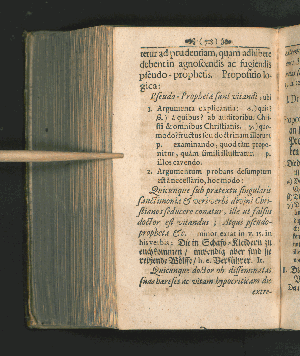 (78)
tetur ad prudentiam, quam adhibere
debent in agnoscendis ac fugiendis
pseudo-prophetis. Propositio lo-
gica:
Pseudo-Prophetæ sunt vitandi: ubi
1. Argumenta explicantia: quis?
à quibus? ab auditoribus Chri-
sti & omnibus Christianis.
modo? fructus seu doctrinam illorum
p. examinando, quod tam propo-
nitur, quam simili illustratur p.
illos cavendo.
2. Argumentum probans desumptum
est à necessario, hoc modo:
Quicunque sub prætextu singularis
sanctimoniæ & veri verbi divini Chri-
stianos seducere conatur, ille ut falsus
doctor est vitandus; atqui pseudo-
prophetæ &c. minor extat in v. 15. in
his verbis: Die in Schafs-Kleidern zu
euch kommen, inwendig aber sind sie
reißende Wölffe, h. e. Verführer. It.
Quicunque doctor ob disseminatas
suas hæreses ac vitam hypocriticam die
extre-